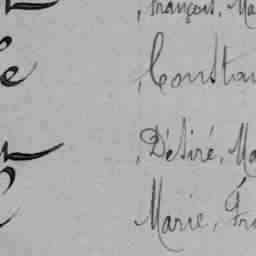 , François, Ma
, Constan
, Désiré, Ma
Marie, Fra